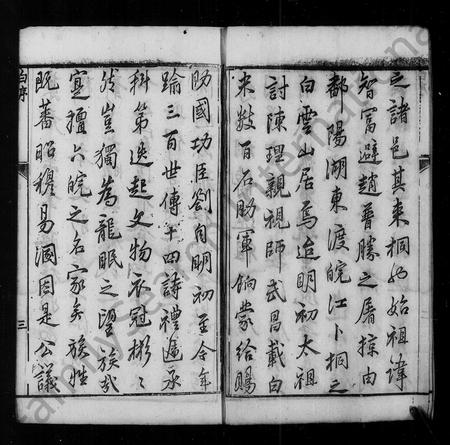 之諸邑其来桐也始祖諱
智富避趙普勝之屠掠由
鄱陽湖東渡皖江卜桐之
白雲山居焉迨明初太祖
討陳理親視師武昌載白
米数百石助軍餉蒙給賜
助國功臣劄自明初至今年
踰三百世傳十四詩禮遞承
科第迭起文物衣冠彬〻
然豈獨為龍眠之望族哉
寔擅六皖之名家矣族姓
既蕃昭穆易溷因是公議
白序
三
FamilySearch International